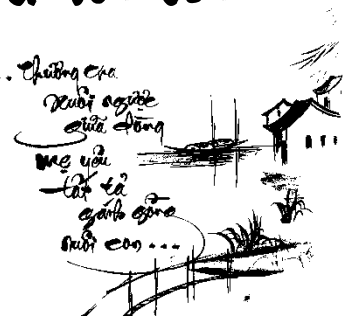 Thương cha
xuôi ngược
giữa dòng
mẹ yêu
tất tả
gánh gồng
nuôi con ...